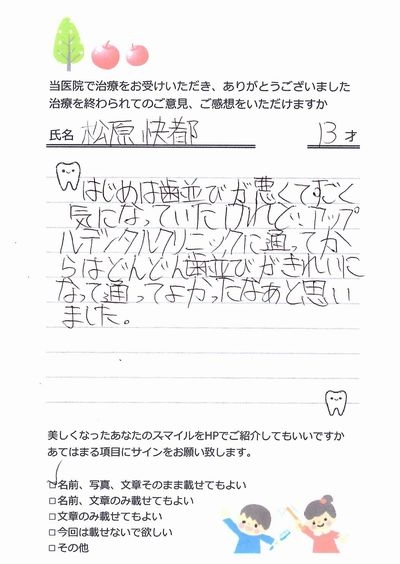 当医院で治療をお受けいただき、ありがとうございました
治療を終わられてのご意見、ご感想をいただけますか
氏名 松原 快都 13才
はじめは歯並びが悪くてすごく
気になっていたけれど、アップ
ルデンタルクリニックに通ってか
らはどんどん歯並びがきれいに
なって通ってよかったなぁと思い
ました。
美しくなったあなたのスマイルをHPでご紹介してもいいですか
あてはまる項目にサインをお願い致します。
□名前、写真、文章そのまま載せてもよい
□名前、文章のみ載せてもよい
□文章のみ載せてもよい
□今回は載せないで欲しい
□その他